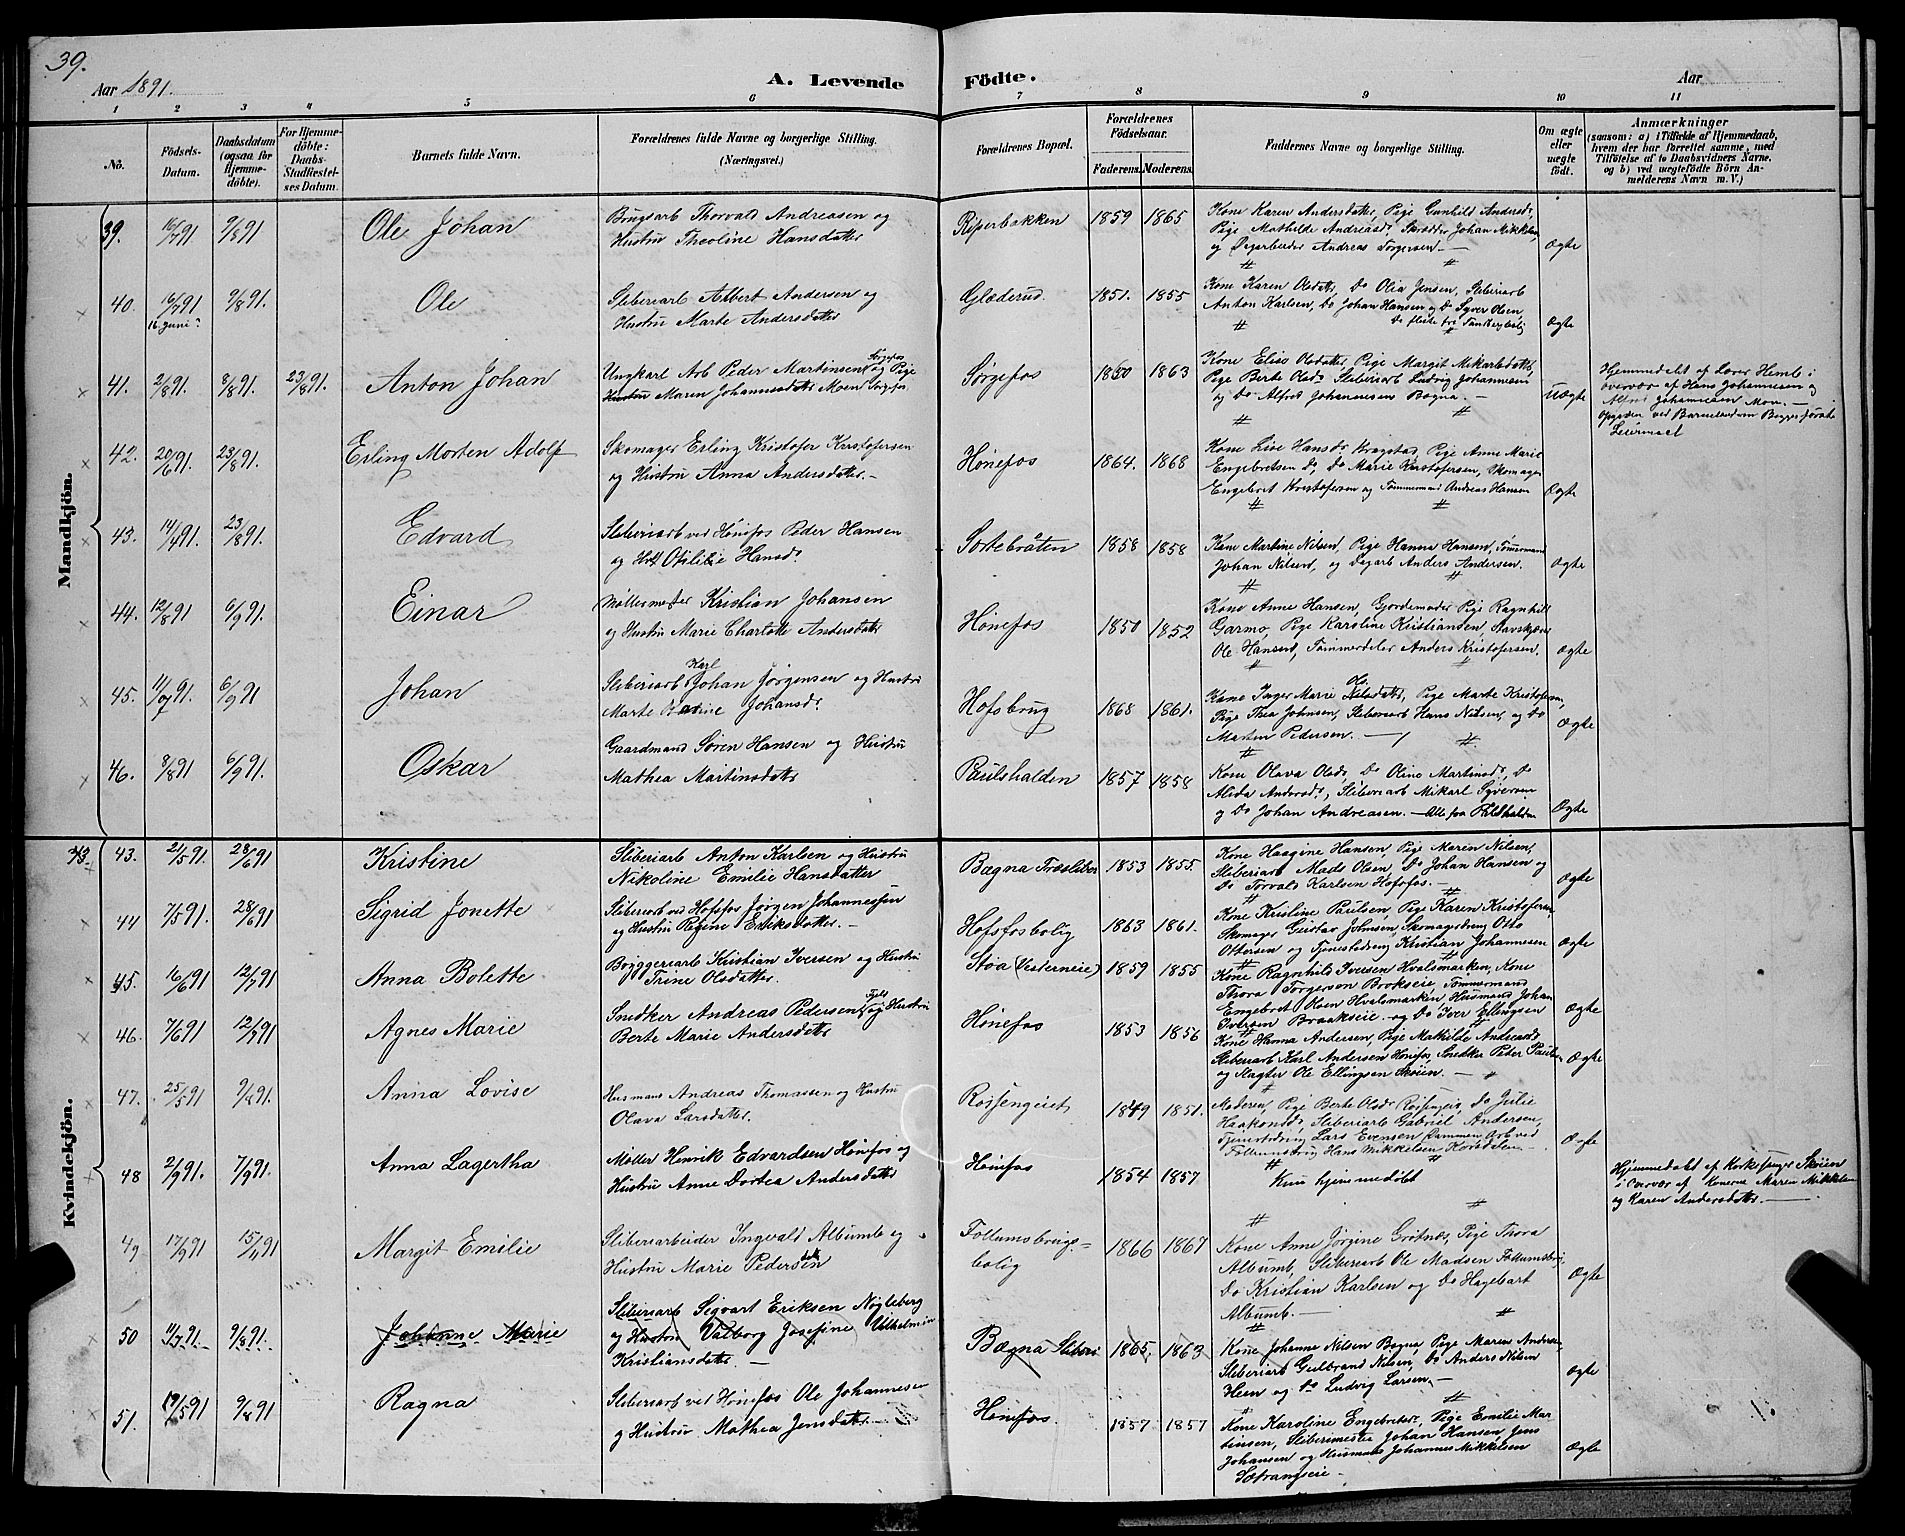 39.
Aar 1891.
A. Levende Födte.
Aar
1 2 3 4 5 6 7 8 9 10 11
No.
Födsels-Datum.
Daabsdatum (ogsaa for Hjemmedöbte).
For Hjemmedöbte: Daabs-Stadfæstelses Datum.
Barnets fulde Navn.
Forældrenes fulde Navne og borgerlige Stilling. (Næringsvei.)
Forældrenes Bopæl.
Forældrenes Födselsaar.
Faderens. Moderens.
Faddernes Navne og borgerlige Stilling.
Om ægte eller uægte födt.
Anmærkninger (saasom: a) i Tilfælde af Hjemmedaab, hvem der har forrettet samme, med Tilföielse af to Daabsvidners Navne. og b) ved uægtefödte Börn Anmelderens Navn m. V.)
Mandkjön.
39. 16/7 91 9/8 91 Ole Johan
Brugsarb Thorvald Andreasen og
Hustru Theoline Hansdatter
Riperbakken 1859 1865
Kone Karen Andersdatter, Pige Gunhild Andersdr,
Pige Mathilde Andreasdr Skrædder Johan Mikkelsen
og Dagarbeider Andreas Torgersen. — Ægte
40. 16/7 91 16 Juni? 9/8 91. Ole
Sliberiarb Albert Andersen og
Hustru Marte Andersdatter
Glæderud. 1851. 1855
Kone Karen Olsdatter, Do Olia Jensen, Sliberiarb
Anton Karlsen, Do Johan Hansen og Do Syver Olsen,
De fleste fra Ægte
41. 2/8 91. 8/8 91. 23/8 91. Anton Johan
Ungkarl Arb Peder Martinsen Sørgefos og Pige
Hustru Maren Johannesdatter Moen
Sørgefos 1850 1863
Kone Elise Olsdatter, Pige Margit
Pige Berte Olsdr Sliberiarb Ludvig Johannesen
og Do Alfred Johannesen Bægna. — Uægte
Hjemmedøbt af Lærer Hemb i
overvær af Hans Johannesen og
Alfred Johannesen Moen. —
Leiermaal
42. 20/6 91. 23/8 91. Erling Morten Adolf
Skomager Erling Kristofer Kristofersen
og Hustru Anna Andersdatter. —
Hønefos 1864. 1868
Kone Live Hansdr Kragstad, Pige Anne Marie
Engebretsen Do, Do Marie Kristofersen, Skomager
Engebret Kristofersen og Tømmermand Andreas Hansen Ægte
43. 14/4 91. 23/8 91. Edvard
Sliberiarb ved Hønefos Peder Hansen
og Hst Otilie Hansdr
Sortebråten 1858 1858
Kone Martine Nilsen, Pige Hanna Hansen, Tømmermand
Johan Nilsen, og Dagarb Anders Andersen. Ægte
44. 12/8 91 6/9 91. Einar
Møllermester Kristian Johansen
og Hustru Marie Charlotte Andersdatter
Hønefos 1850 1852
Kone Anne Hansen, Gjordemoder Pige Ragnhild
Garmo, Pige Karoline Kristiansen,
Ole Hansen, Tømmerdeler Anders Kristofersen. Ægte
45. 11/7 91. 6/9 91 Johan
Sliberiarb Karl Johan Jørgensen og Hustru
Marte Johansdr
Hofsbrug 1868 1861.
Kone Inger Marie Olsdatter, Pige Marte Kristofersen,
Pige Thea Johnsen, Sliberiarb Hans Nilsen, og Do
Martin Pedersen. — Ægte
46. 8/8 91 6/9 91. Oskar
Gaardmand Søren Hansen og Hustru
Mathea Martinsdatter
Paulshalden 1857 1858
Kone Olava Olsdr, Do Oline Martinsdr, Do
Alida Andersdr, Sliberiarb Mikael Syversen
og Do Johan Andreasen. — Alle fra Ægte
Kvindekjön.
43. 43. 2/5 91. 28/6 91 Kristine
Sliberiarb Anton Karlsen og Hustru
Nikoline Emilie Hansdatter
Bægna Træsliberi 1853 1855.
Kone Haagine Hansen, Pige Maren Nilsen,
Sliberiarb Mads Olsen, Do Johan Hansen og
Do Torvald Karlsen Hofsfos. — Ægte
44 7/5 91. 28/6 91 Sigrid Jonette
Sliberiarb ved Hofsfos Jørgen Johannessen
og Hustru Regine Eriksdatter. —
Hofsfosbolig 1863 1861.
Kone Kristine Paulsen, Pige Karen Kristofersen
Skomager Gustav Johnsen, Skomagerdreng Otto
Ottersen og Tjenestedreng Kristian Johannesen Ægte
45. 16/6 91 12/7 91 Anna Bolette
Bryggeriarb Kristian Iversen og Hustru
Trine Olsdatter.
Støa (Vesterneie) 1859 1855
Kone Ragnhild Iversen Hvalsmarken, Kone
Thora Torgersen Brokseie, Tømmermand
Engebret Olsen Hvalsmarken Husmand Johan
Iversen Braakseie. og Do Iver Ellingsen Ægte
46. 7/6 91 12/7 91 Agnes Marie
Snedker Andreas Pedersen Fjeld og Hustru
Berte Marie Andersdatter
Hønefos 1853 1856
Kone Hanna Andersen, Pige Mathilde Andreasdr
Sliberiarb Karl Andersen Hønefos, Snedker Peder Paulsen
og Slagter Ole Ellingsen Skøien. — Ægte
47. 25/5 91 9/8 91. Anna Lovise
Husmand Andreas Thomassen og Hustru
Olava Larsdatter.
Røssengeiet 1849 1851.
Moderen, Pige Berte Olsdr Røssengeie, Do Julie
Haakonsdr, Sliberiarb Gabriel Andersen,
Tjenestedreng Lars Evensen Dammen Arb ved
Follumsbrug Hans Mikkelsen Ægte
48 2/9 91. 7/9 91. Anna Lagertha
Møller Henrik Edvardsen Hønefos og
Hustru Anne Dortea Andersdatter
Hønefos 1854 1857
Kun hjemmedøbt
Hjemmedøbt af Kirkesanger Skøien
i Overvær af Konerne Maren Mikkelsen
og Karen Andersdatter. —
49 17/9 91 15/11 91 Margit Emilie
Sliberiarbeider Ingvald Albumb og
Hustru Marie Pedersen
Follumsbrugs=
bolig 1866 1867
Kone Anne Jørgine Grøtnæs, Pige Thora
Albumb, Sliberiarb Ole Madsen Follumsbrug,
Do Kristian Karlsen og Do Hagebart
Albumb. — Ægte
50 11/7 91. 9/8 91. Johanne Marie
Sliberiarb Sigvart Eriksen Nøgleberg
og Hustru Valborg Josefine Vilhelmine
Kristiansdatter. —
Bægna Sliberi 1865. 1863
Kone Johanne Nilsen Bægna Pige Maren Andersen,
Sliberiarb Gulbrand Nilsen, Do Anders Nilsen
Heen og Do Ludvig Larsen, — Ægte
51. 19/5 91 9/8 91 Ragna
Sliberiarb ved Hønefos Ole Johannesen
og Hustru Mathea Jensdatter —
Hønefos. 1857 1857
Kone Karoline Engebretsdr, Pige Emilie Mar
tinsen, Sliberimester Johan Hansen, Jens
Johansen og Husmand Johannes Mikkelsen
Sætrangseie — Ægte